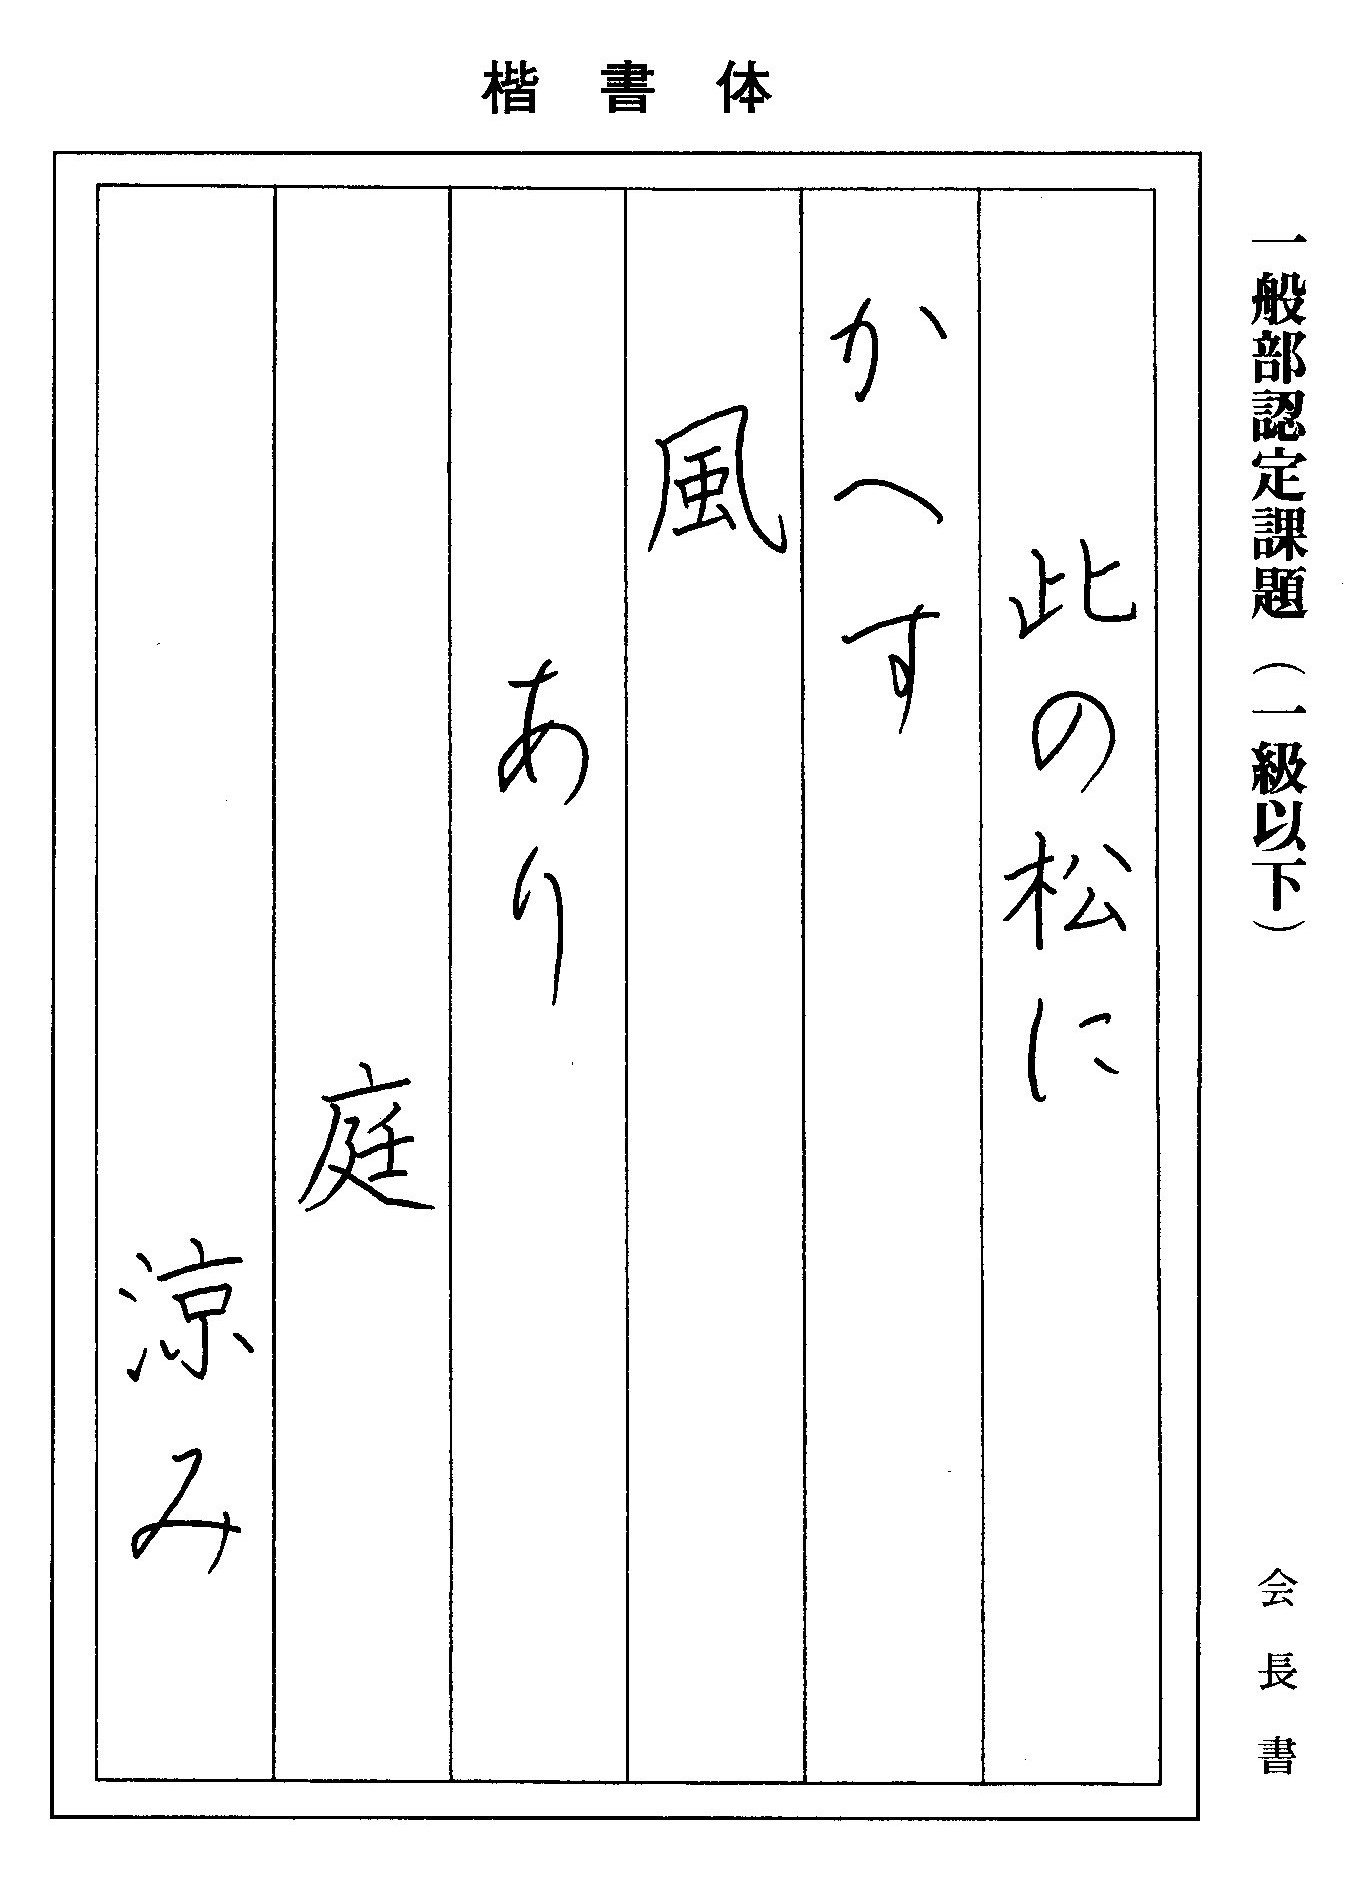 楷書体
一般部認定課題（一級以下）
会長書
此の松に
かへす
風
あり
庭
涼み